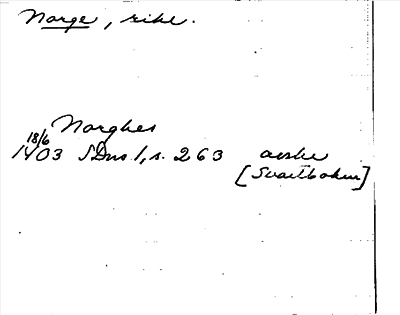 Norge, rike.
Norghes
18/6
1403 SDns 1, s. 263 avskr
[Svartboken]